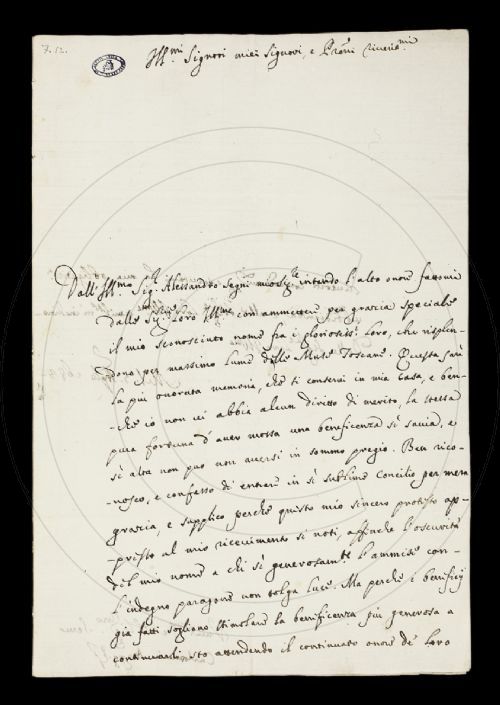 Ill.mi Signori miei Signori, e Pròni riveriti.mi
Dall' Ill.mo Sig.r Alessandro Segni intendo l'alto onore fattomi
dalle Sig.rie Loro Ill.me con ammettere per grazia speciale
il mio sconosciuto nome fra i gloriosiss.i loro, che risplen-
dono per massimo lume delle Muse Toscane. Questa sarà
la più onorata memoria, che si conservi in mia Casa, e ben-
che io non vi abbia alcun diritto di merito, la stessa
pura fortuna d'aver mossa una beneficenza sì savia, e
sì alta non può non aversi in sommo pregio. Ben rico-
nosco, e confesso di entrare in sì sublime Concilio per mera
grazia, e supplico perche questo mio sincero protesto ap-
presso al mio ricevimento si noti, affinche l'oscurità
del mio nome a chi sì generosam.te l'ammise con-
l'indegno paragone non tolga luce. Ma perche i benificij
già fatti sogliono stimolare la benificenza più generosa a
continuarli sto attendendo il continuato onore de loro